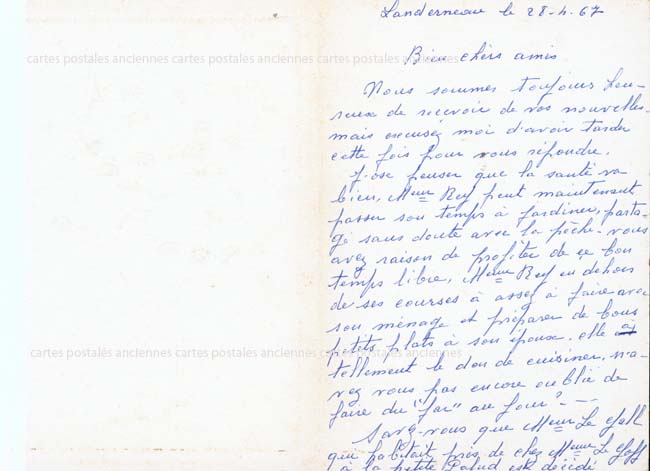 Landerneau le 28-4-67
Bien chers amis
cartes postales anciennes cartes postales anciennes cartes postales anciennes
Nous sommes toujours heu-
reux de recevoir de vos nouvelles.
mais excusez moi d'avoir tarder
cette fois pour vous répondre.
J'ose penser que la santé va
bien, Mr Rey peut maintenant
passer son temps à jardiner, parta-
gé sans doute avec la pêche. vous
avez raison de profiter de ce bon
temps libre, Mme Rey en dehors
de ses courses à assez à faire avec
son ménage et préparer de bons
petits plats à son épouse, elle a
cartes postales anciennes cartes postales anciennes cartes postales anciennes
tellement le don de cuisiner, n'a-
vez vous pas encore oublié de
faire du "far" au four? - -
Savez-vous que Mr Le Gall
qui habitait près de chez Mme Le Goff
à la petite Palud est décédé